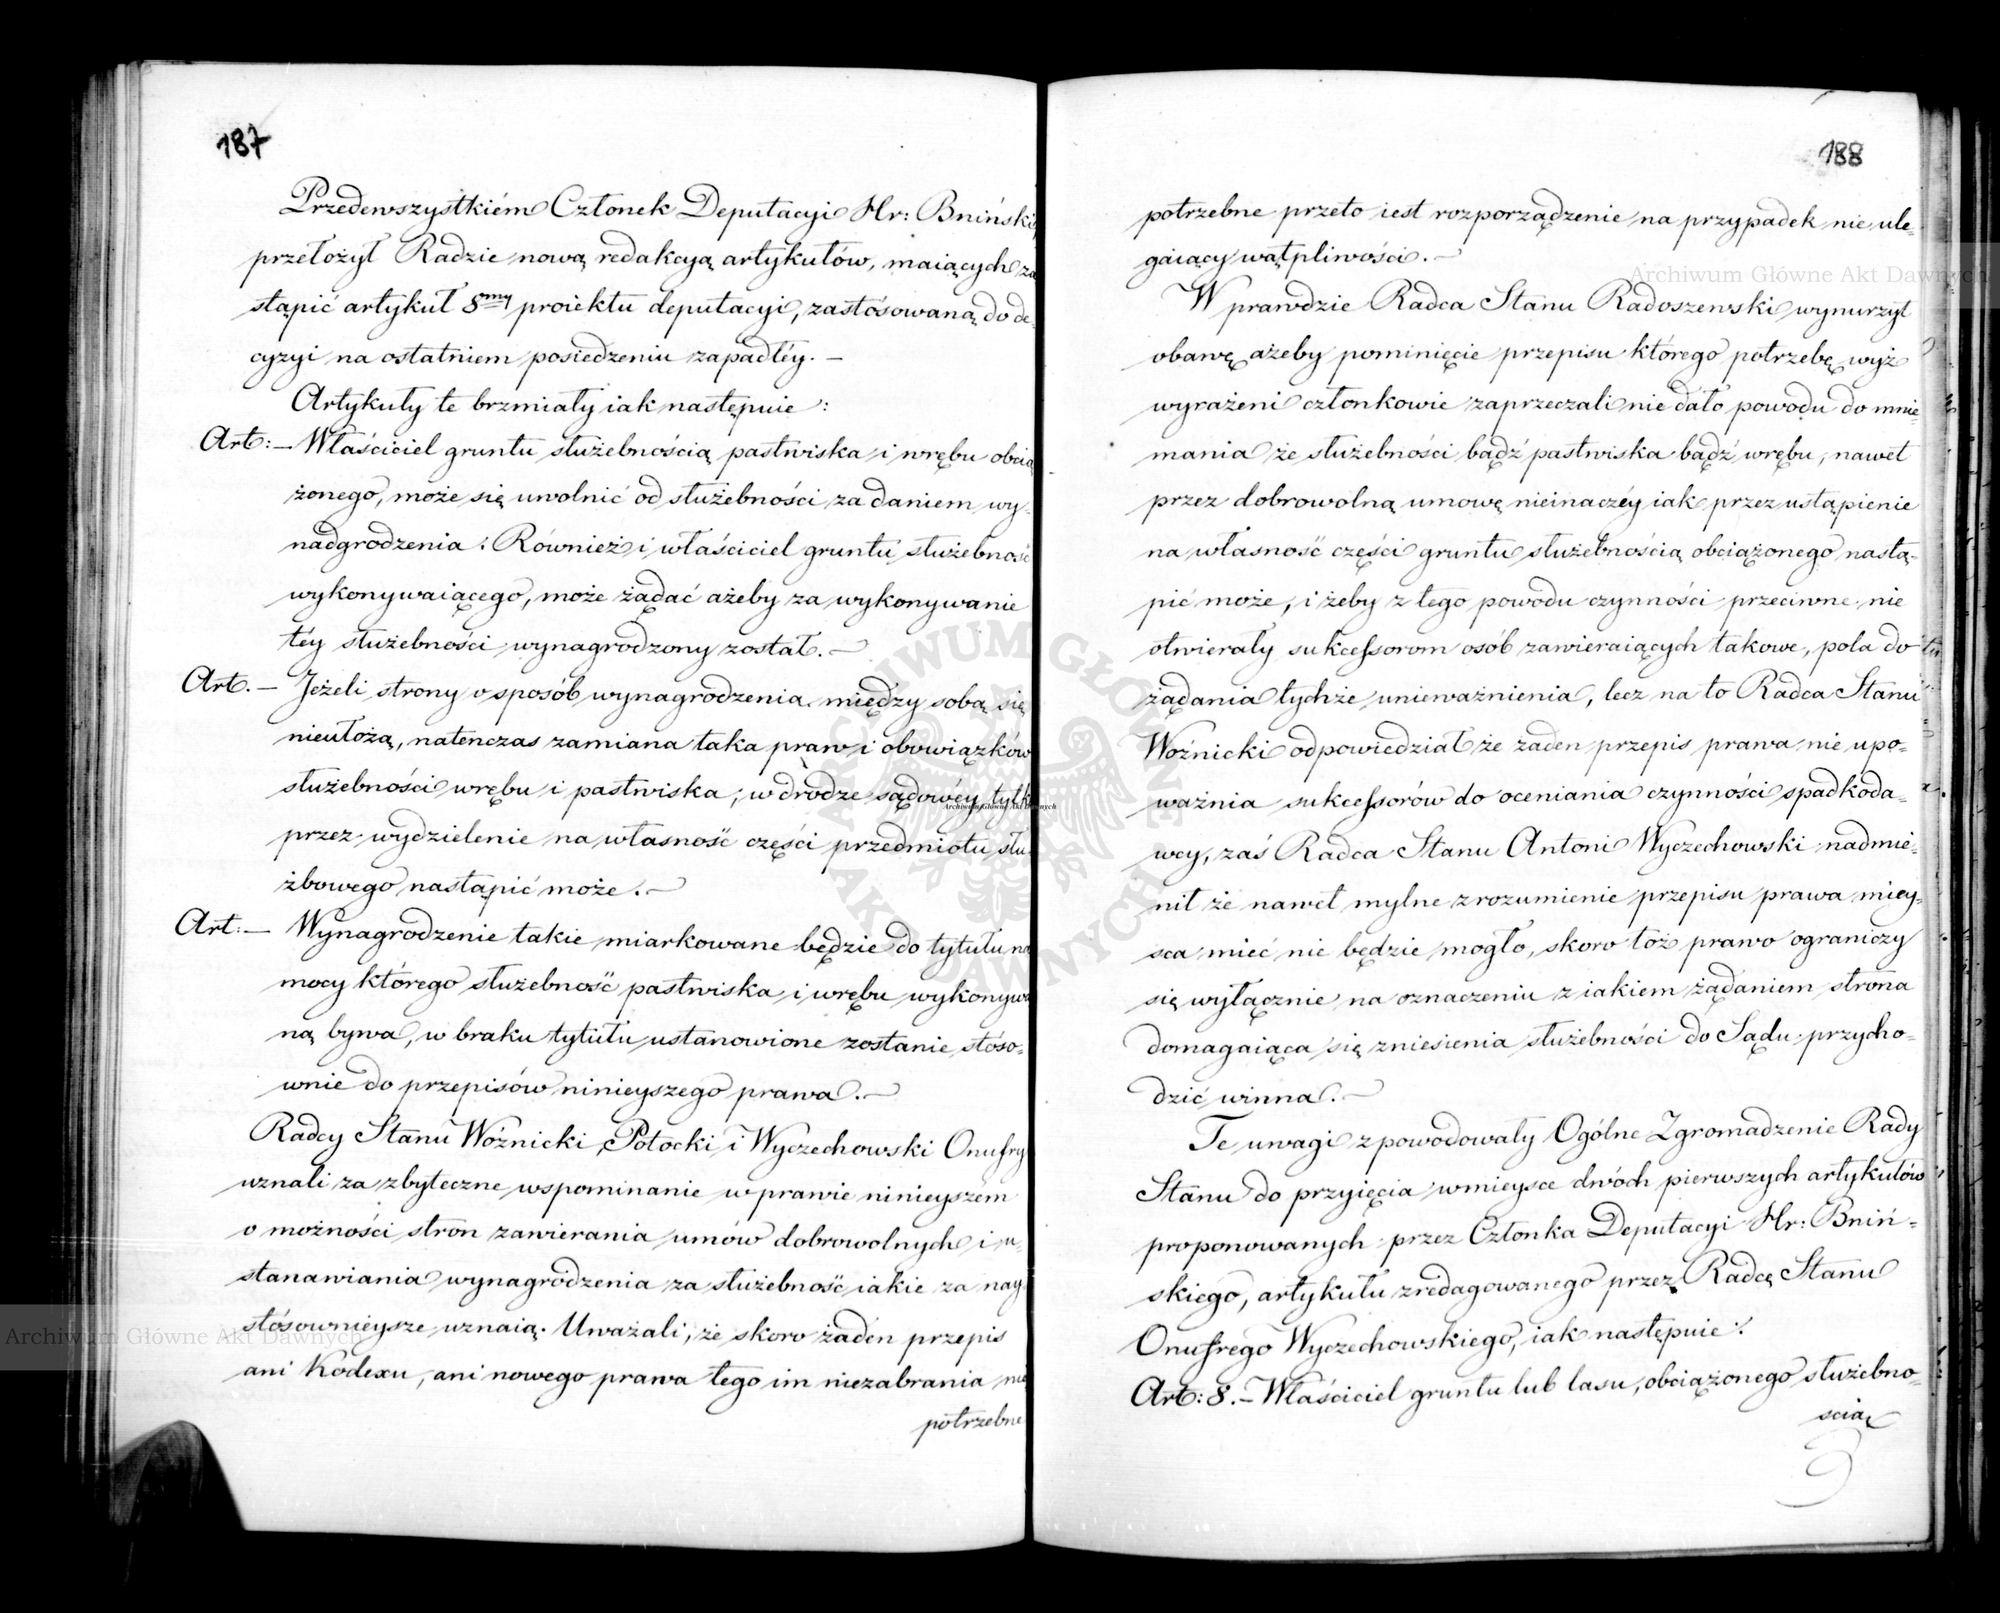 187
Przedewszystkiém Członek Deputacyi Hr: Bniński,
przełożył Radzie nową redakcyą artykułów, maiących za
stąpić artykuł 8my proiektu deputacyi, zastósowaną do de-
cyzyi na ostatniem posiedzeniu zapadłéy. —
Artykuły te brzmiały iak następuie:
Art: — Właściciel gruntu służebnością pastwiska i wrębu obcią
żonego, może się uwolnić od służebności za daniem wy-
nadgrodzenia. Również i właściciel gruntu służebność
wykonywaiącego, może żądać ażeby za wykonywanie
téy służebności wynagrodzony został. —
Art. — Jeżeli strony o sposób wynagrodzenia między sobą się
nieułożą, natenczas zamiana taka praw i obowiązków
służebności wrębu i pastwiska, w drodze sądowéy tylk
przez wydzielenie na własność części przedmiotu słu-
żbowego nastąpić może. —
Art: — Wynagrodzenie takie miarkowane będzie do tytułu na
mocy którego służebność pastwiska i wrębu wykonywa
ną bywa, w braku tytułu ustanowione zostanie stóso-
wnie do przepisów ninieyszego prawa. —
Radcy Stanu Woźnicki, Potocki i Wyczechowski Onufry
uznali za zbyteczne wspominanie w prawie ninieyszem
o możności stron zawierania umów dobrowolnych i u-
stanawiania wynagrodzenia za służebność iakie za nay
stósownieysze uznaią. Uważali, że skoro żaden przepis
ani Kodexu, ani nowego prawa tego im niezabrania, nie
potrzebne
188
potrzebne przeto iest rozporządzenie na przypadek nie ule-
gaiący wątpliwości. —
W prawdzie Radca Stanu Radoszewski wynurzył
obawę ażeby pominięcie przepisu którego potrzebę wyż
wyrażeni członkowie zaprzeczali nie dało powodu do mnie-
mania że służebności bądź pastwiska bądź wrębu, nawet
przez dobrowolną umowę nieinaczéy iak przez ustąpienie
na własność części gruntu służebnością obciążonego nastą-
pić może, i żeby z tego powodu czynności przeciwne nie
otwierały sukcessorom osób zawieraiących takowe, pola do
żądania tychże unieważnienia, lecz na to Radca Stanu
Woźnicki odpowiedział że żaden przepis prawa nie upo-
ważnia sukcessorów do oceniania czynności spadkoda-
wcy, zaś Radca Stanu Antoni Wyczechowski nadmie-
nił że nawet mylne zrozumienie przepisu prawa miey-
sca mieć nie będzie mogło, skoro toż prawo ograniczy
się wyłącznie na oznaczeniu z iakiem żądaniem strona
domagaiąca się zniesienia służebności do Sądu przycho-
dzić winna. —
Te uwagi spowodowały Ogólne Zgromadzenie Rady
Stanu do przyięcia w mieysce dwóch pierwszych artykułów
proponowanych przez Członka Deputacyi Hr: Bniń-
skiego, artykułu zredagowanego przez Radcę Stanu
Onufrego Wyczechowskiego, iak następuie:
Art: 8. — Właściciel gruntu lub lasu, obciążonego służebno-
scią
Archiwum Główne Akt Dawnych
Archiwum Główne Akt Dawnych
Archiwum Główne Akt Dawnych
ARCHIWUM GŁÓWNE AKT DAWNYCH